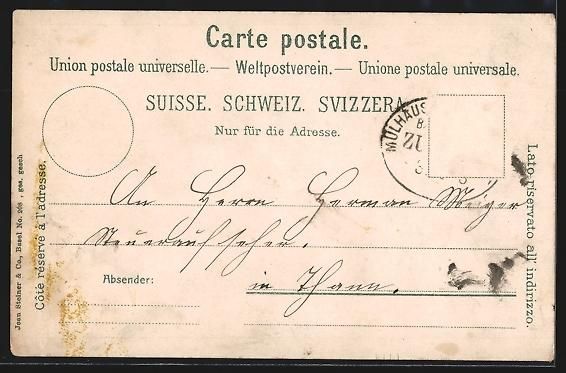 Carte postale.
Union postale universelle. — Weltpostverein. — Unione postale universale.
SUISSE. SCHWEIZ. SVIZZERA
Nur für die Adresse.
MÜLHAUS
An Herrn Herman
Steueraufseher.
in Thann.
Absender:
Côté réservé à l'adresse.
Jean Steiner & Co., Basel No. 208, ges. gesch
Lato riservato all' indirizzo.